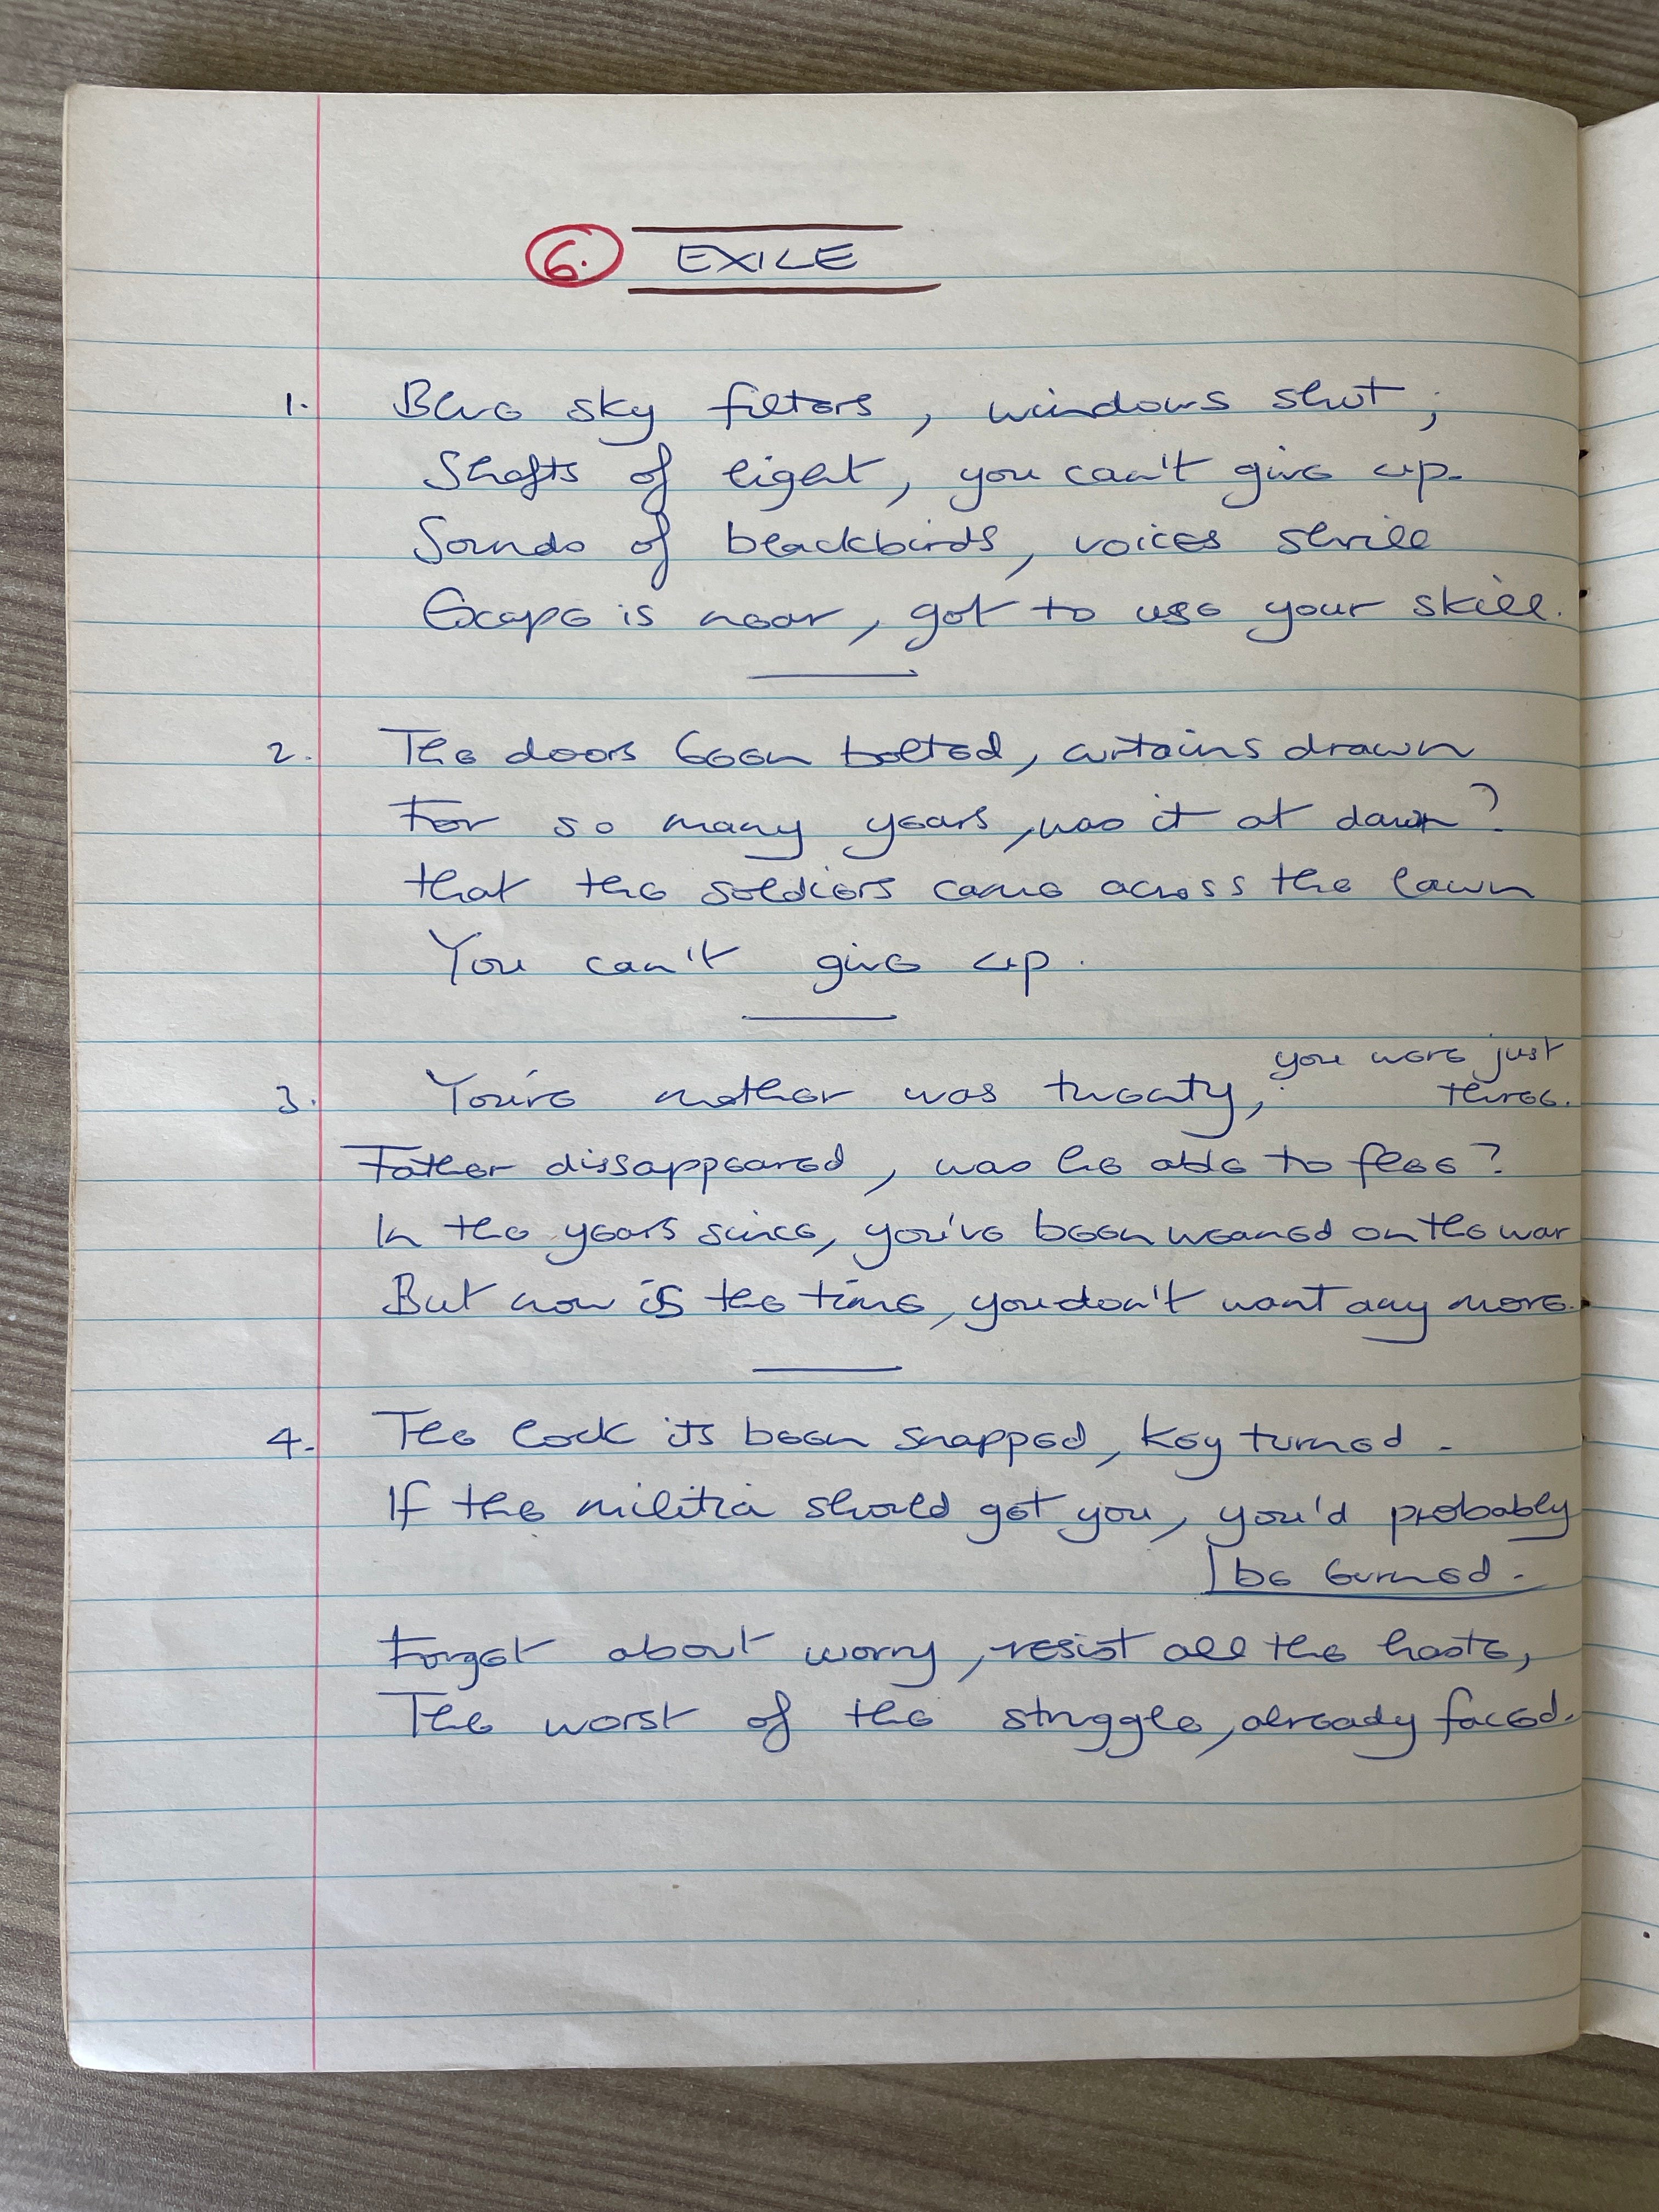 6. EXILE
1. Blue sky filters, windows shut;
Shafts of light, you can't give up.
Sounds of blackbirds, voices shrill
Escape is near, got to use your skill.
2. The doors been bolted, curtains drawn
For so many years, was it at dawn?
that the soldiers came across the lawn
You can't give up.
3. You're mother was twenty, you were just
three.
Father dissappeared, was he able to flee?
In the years since, you've been weaned on the war
But now is the time, you don't want any more.
4. The lock its been snapped, key turned.
If the militia should get you, you'd probably
be burned.
Forget about worry, resist all the haste,
The worst of the struggle, already faced.